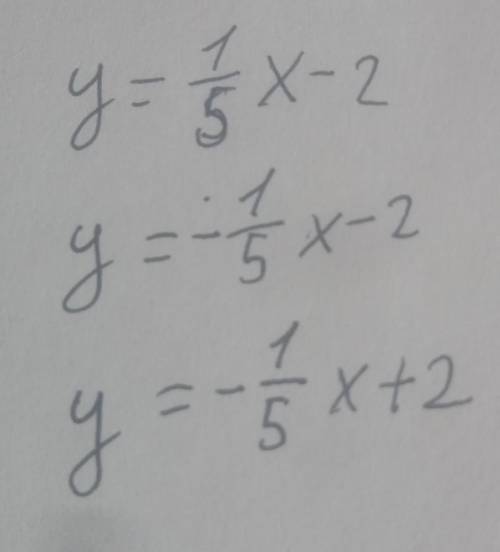 y = 1/5 x - 2
y = - 1/5 x - 2
y = - 1/5 x + 2